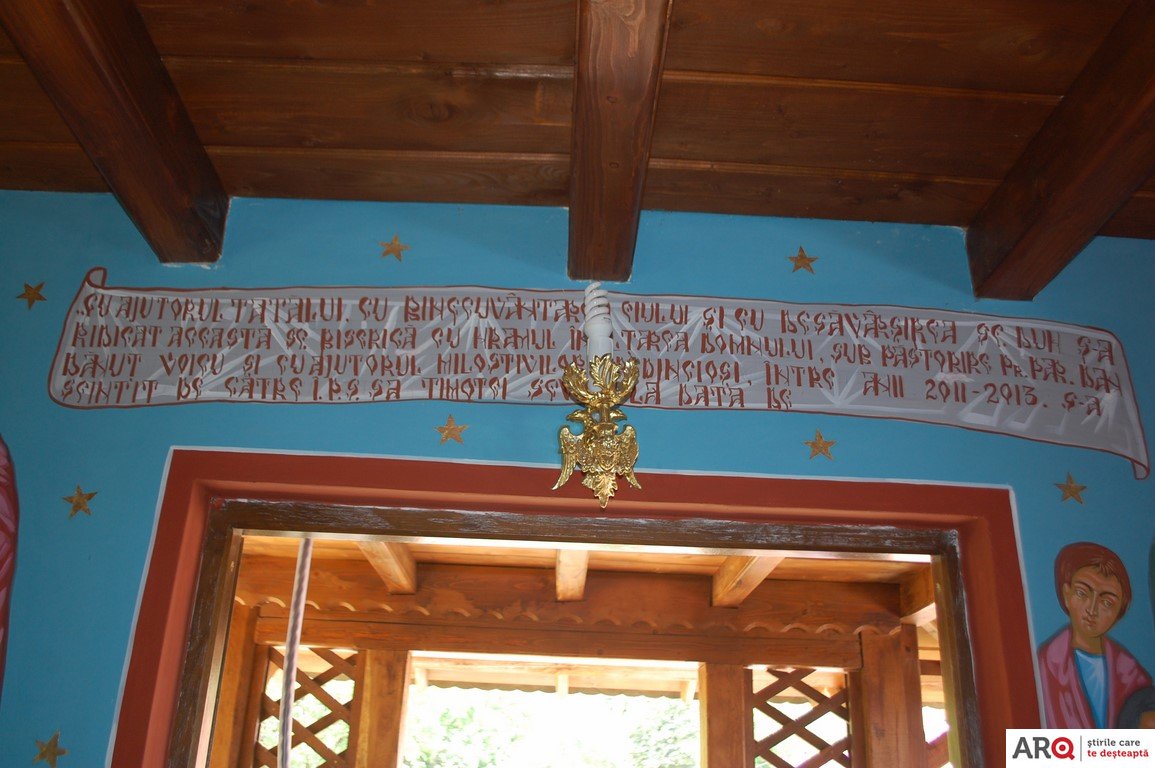 „CU AJUTORUL TATALUI, CU BINECUVÂNTAREA FIULUI ȘI CU DESĂVÂRȘIREA SF. DUH S-A
RIDICAT ACEASTA SF. BISERICĂ CU HRAMUL DOMNULUI, SUB PĂSTORIRE PR. PAR. DAN
DĂNUȚ VOICU ȘI CU AJUTORUL MILOSTIVILOR CREDINCIOȘI, ÎNTRE ANII 2011-2013. S-A
SFINȚIT DE CĂTRE Î.P.S.SA TIMOTEI LA DATA DE
ARQ știrile care
te deșteaptă